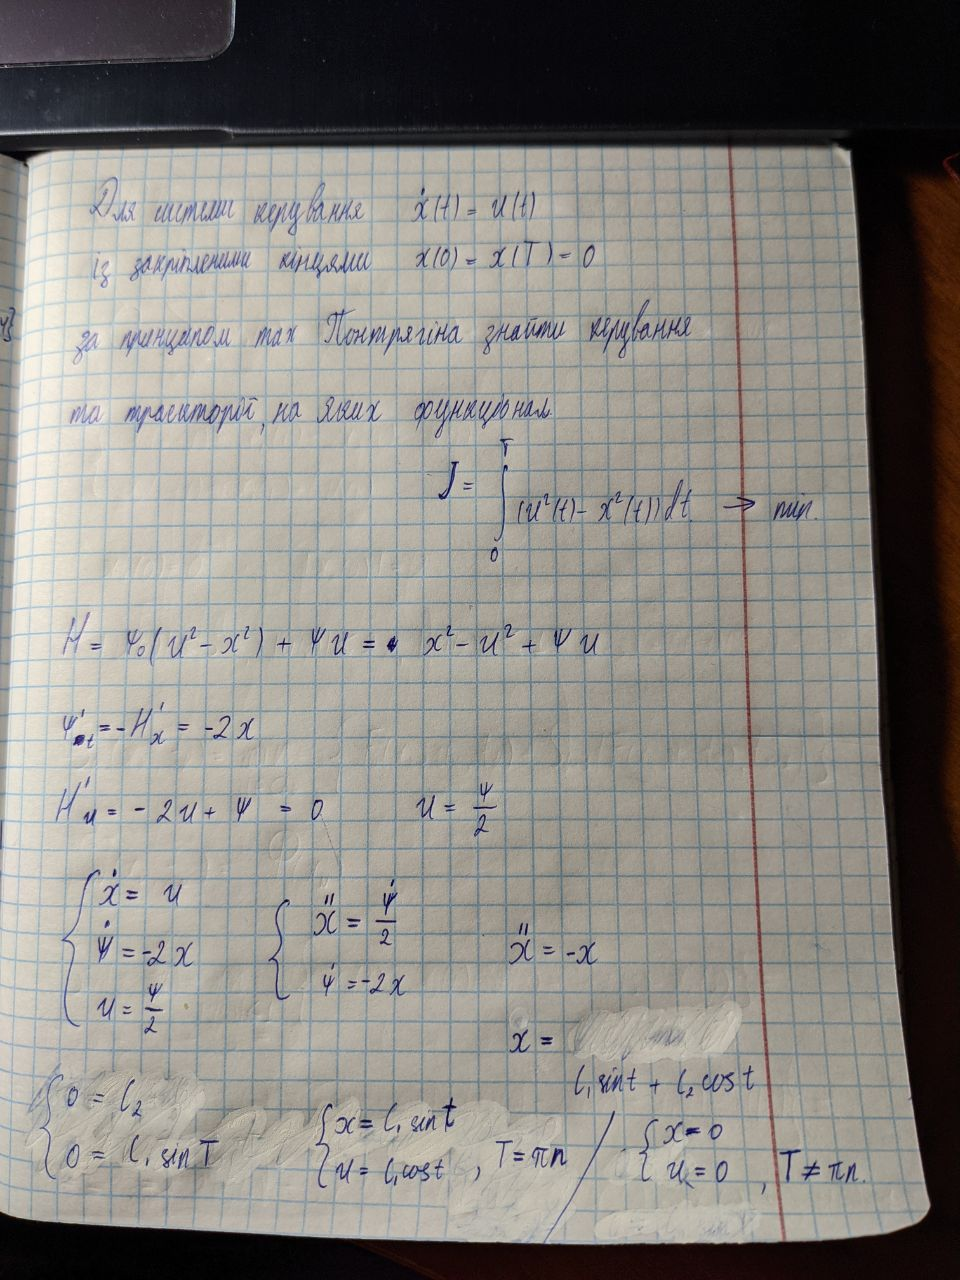 Для системи керування ẋ(t) = u(t)
із закріпленими кінцями x(0) = x(T) = 0
за принципом max Понтрягіна знайти керування
та траєкторії, на яких функціонал
J = ∫₀ᵀ (u²(t) - x²(t)) dt → min.
H = ψ₀(u² - x²) + ψu = x² - u² + ψu
ψ'ₜ = -H'ₓ = -2x
H'ᵤ = -2u + ψ = 0 u = ψ/2
{ ẋ = u
ψ̇ = -2x
u = ψ/2
{ ẍ = ψ̇/2
ψ̇ = -2x
ẍ = -x
x =
C₁ sin t + C₂ cos t
{ 0 = C₂
0 = C₁ sin T
{ x = C₁ sin t
u = C₁ cos t , T = πn /
{ x = 0
u = 0 , T ≠ πn.